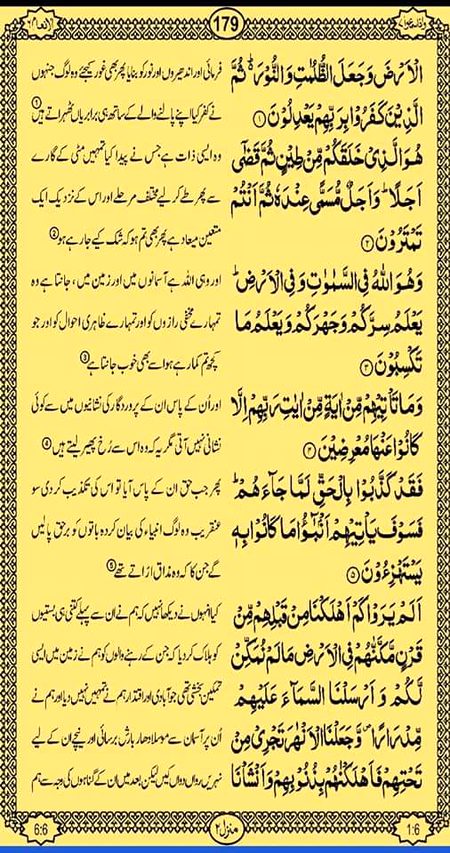 واذاسمعوا۷
179
الانعام۶
الْاَرْضَ وَجَعَلَ الظُّلُمٰتِ وَالنُّوْرَ ؕ ثُمَّ
الَّذِيْنَ كَفَرُوْا بِرَبِّهِمْ يَعْدِلُوْنَ ۱
هُوَ الَّذِيْ خَلَقَكُمْ مِّنْ طِيْنٍ ثُمَّ قَضٰۤى
اَجَلًا ؕ وَاَجَلٌ مُّسَمًّى عِنْدَهٗ ثُمَّ اَنْتُمْ
تَمْتَرُوْنَ ۲
وَهُوَ اللّٰهُ فِي السَّمٰوٰتِ وَفِي الْاَرْضِ ؕ
يَعْلَمُ سِرَّكُمْ وَجَهْرَكُمْ وَيَعْلَمُ مَا
تَكْسِبُوْنَ ۳
وَمَا تَاْتِيْهِمْ مِّنْ اٰيَةٍ مِّنْ اٰيٰتِ رَبِّهِمْ اِلَّا
كَانُوْا عَنْهَا مُعْرِضِيْنَ ۴
فَقَدْ كَذَّبُوْا بِالْحَقِّ لَمَّا جَآءَهُمْ ؕ
فَسَوْفَ يَاْتِيْهِمْ اَنْۢبٰٓؤُا مَا كَانُوْا بِهٖ
يَسْتَهْزِءُوْنَ ۵
اَلَمْ يَرَوْا كَمْ اَهْلَكْنَا مِنْ قَبْلِهِمْ مِّنْ
قَرْنٍ مَّكَّنّٰهُمْ فِي الْاَرْضِ مَا لَمْ نُمَكِّنْ
لَّكُمْ وَاَرْسَلْنَا السَّمَآءَ عَلَيْهِمْ
مِّدْرَارًا ۪ وَّجَعَلْنَا الْاَنْهٰرَ تَجْرِيْ مِنْ
تَحْتِهِمْ فَاَهْلَكْنٰهُمْ بِذُنُوْبِهِمْ وَاَنْشَاْنَا
فرمائی اور اندھیروں اور نور کو بنایا پھر بھی غور کیجئے وہ لوگ جنہوں
نے کفر کیا اپنے پالنے والے کے ساتھ ہی برابریاں ٹھہراتے ہیں ①
وہ ایسی ذات ہے جس نے پیدا کیا تمہیں مٹی کے گارے
سے پھر طے کر لیے مختلف مرحلے اور اس کے نزدیک ایک
متعین میعاد ہے پھر بھی تم ہو کہ شک کیے جا رہے ہو ②
اور وہی اللہ ہے آسمانوں میں اور زمین میں، جانتا ہے وہ
تمہارے مخفی رازوں کو اور تمہارے ظاہری احوال کو اور جو
کچھ تم کما رہے ہو اسے بھی خوب جانتا ہے ③
اور اُن کے پاس ان کے پروردگار کی نشانیوں میں سے کوئی
نشانی نہیں آتی مگر یہ کہ وہ اس سے رُخ پھیر لیتے ہیں ④
پھر جب حق ان کے پاس آیا تو اس کی تکذیب کر دی سو
عنقریب وہ لوگ انبیاء کی بیان کردہ باتوں کو برحق پا لیں
گے جن کا کہ وہ مذاق اڑاتے تھے ⑤
کیا انہوں نے دیکھا نہیں کہ ہم نے ان سے پہلے کتنی ہی بستیوں
کو ہلاک کر دیا کہ جن کے رہنے والوں کو ہم نے زمین میں ایسی
تمکین بخشی تھی جو آبادی اور اقتدار ہم نے تمہیں نہیں دیا اور ہم نے
اُن پر آسمان سے موسلا دھار بارش برسائی اور نیچے ان کے لیے
نہریں رواں دواں کیں لیکن بعد میں ان کے گناہوں کی وجہ سے ہم
1:6
منزل۲
6:6